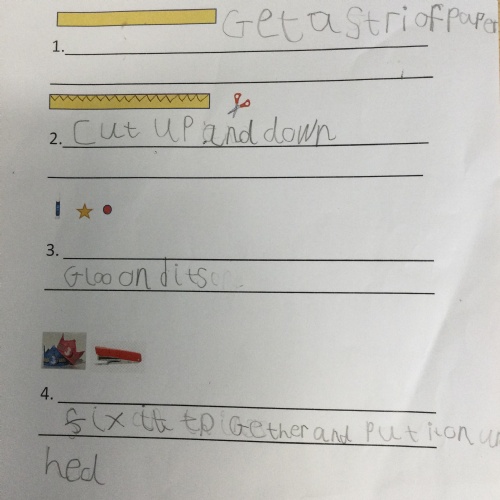 Get a stri of paper
1.
2. Cut up and down
3.
Gloo on dits
4.
Six itt to gether and Put it on u
hed